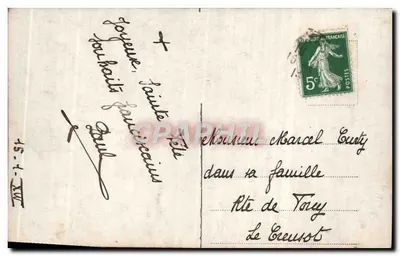 +
Joyeuse, Sainte Fête
Souhaits franciscains
Paul
15-1-XVI
RÉPUBLIQUE FRANÇAISE
5c
POSTES
CARTES
Monsieur Marcel
dans sa famille
Rte de Torcy
Le Creusot